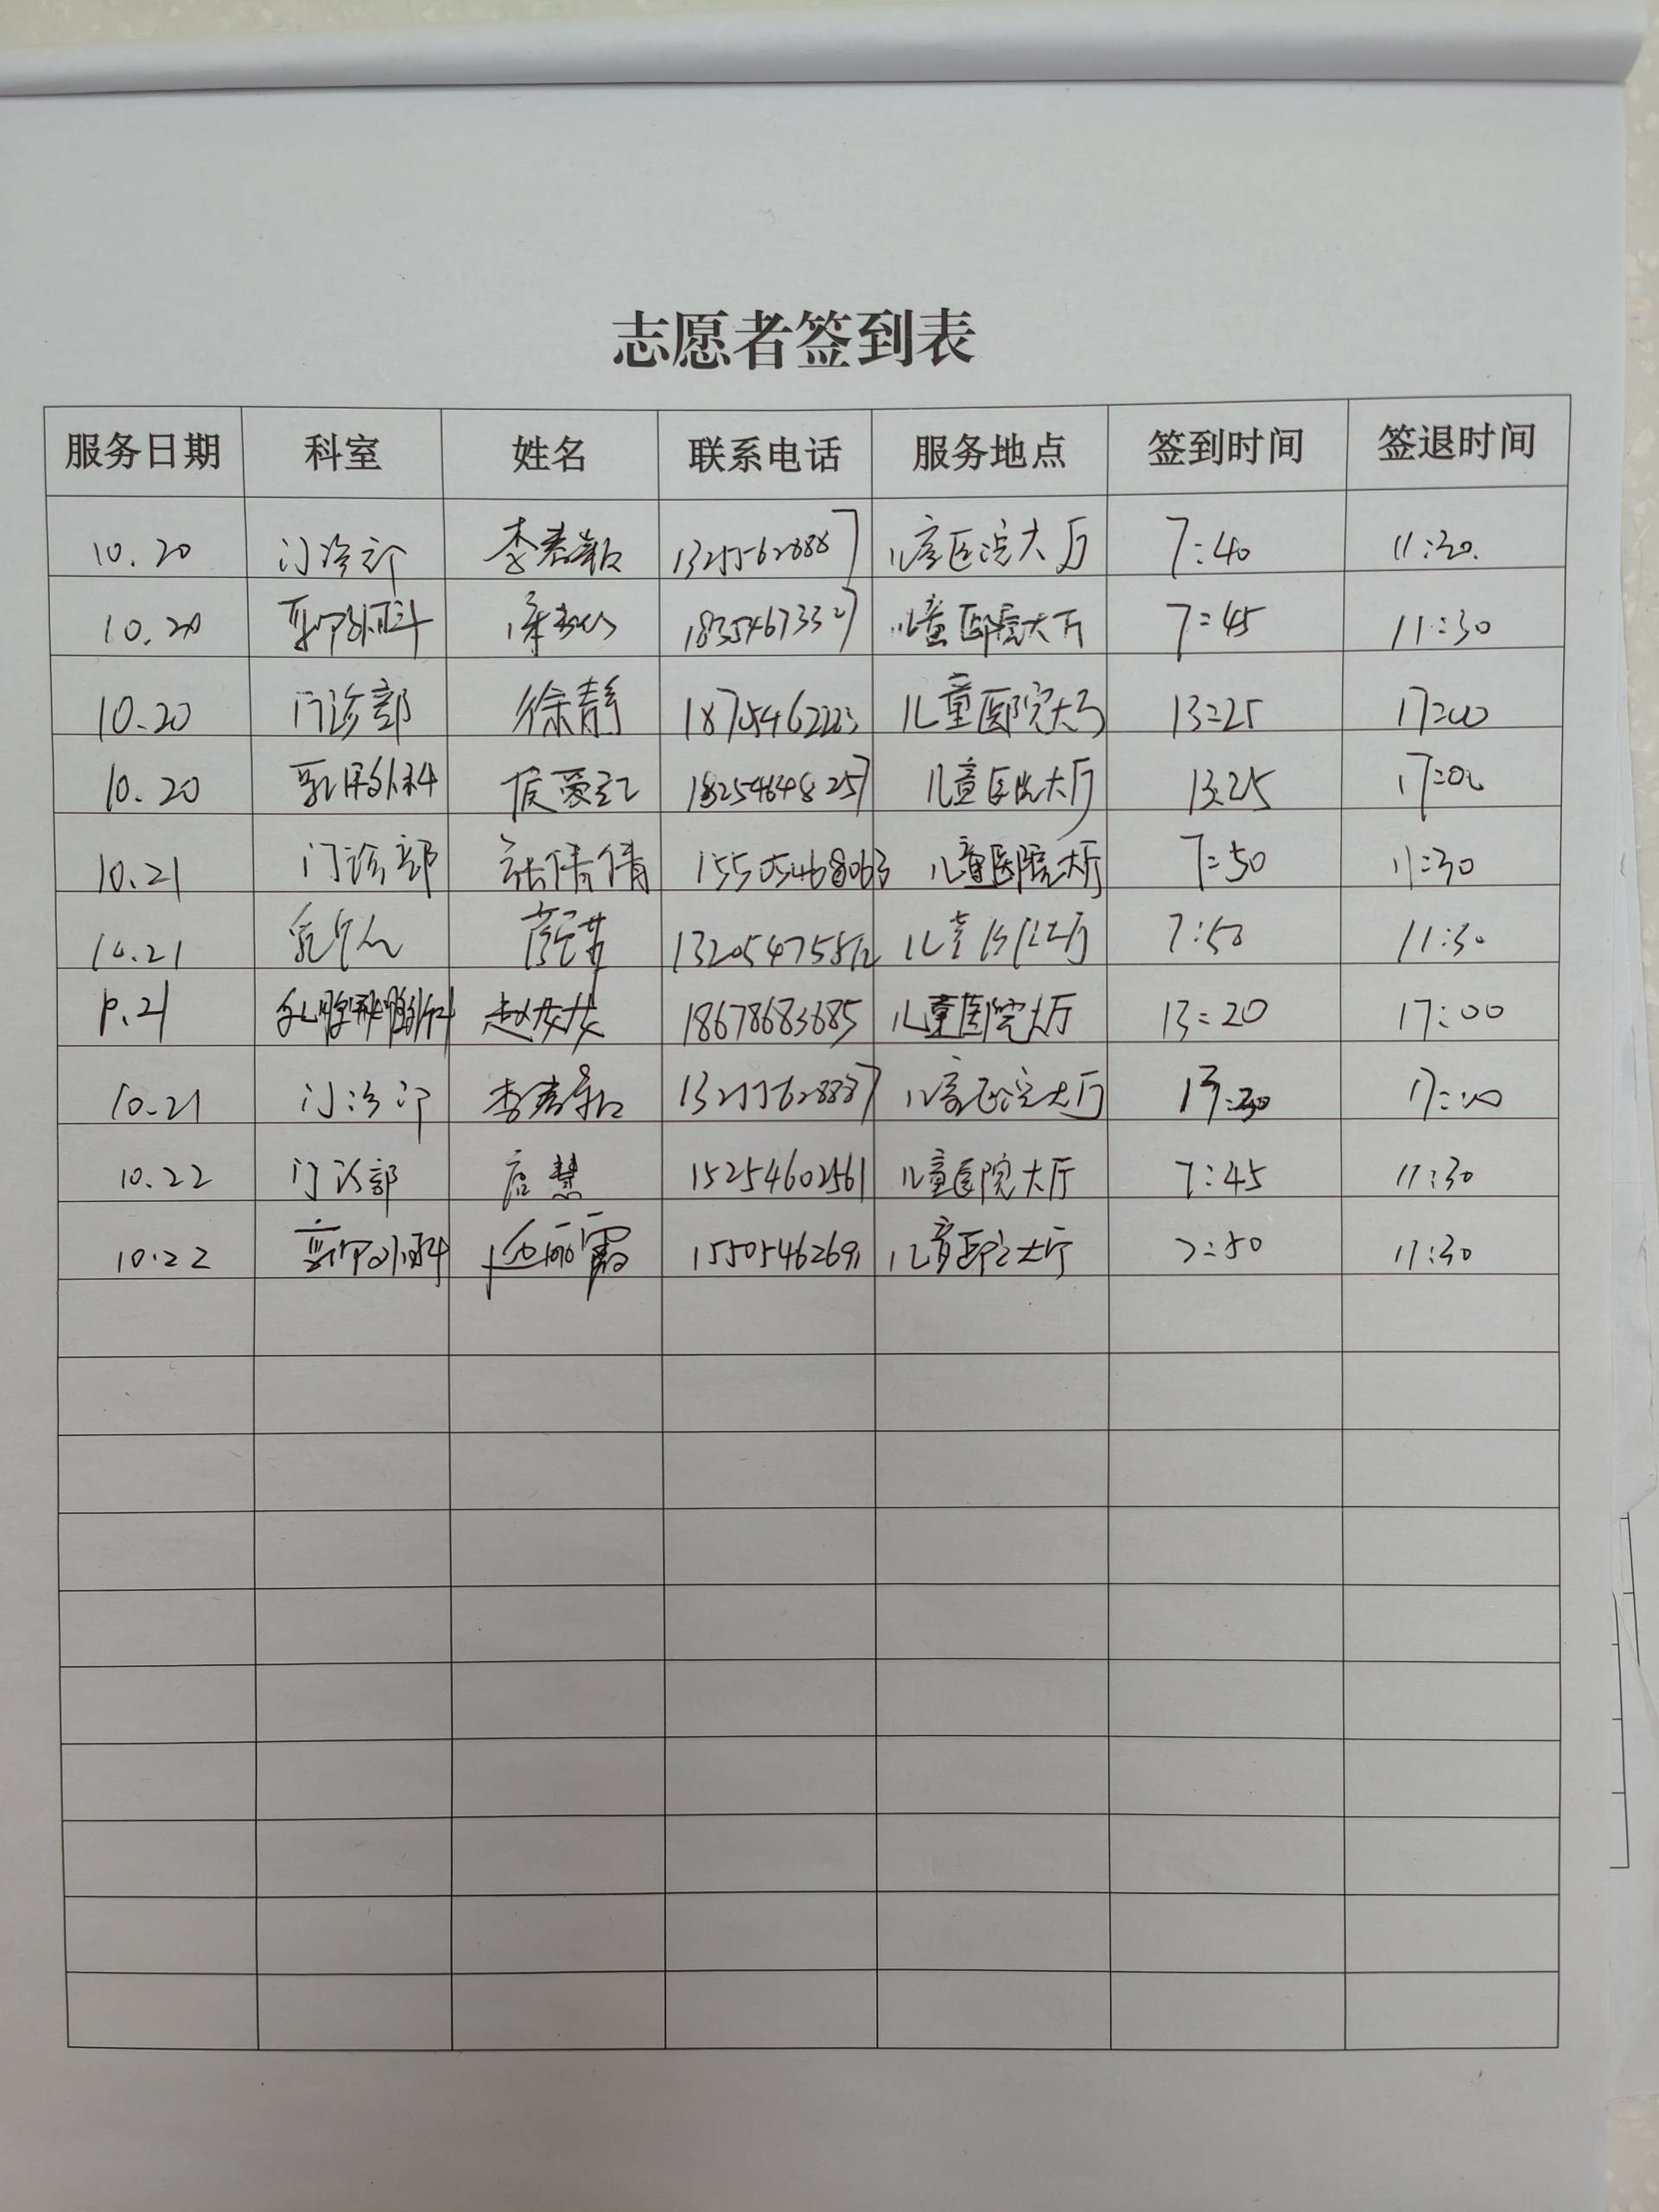 志愿者签到表
服务日期 科室 姓名 联系电话 服务地点 签到时间 签退时间
10.20 门诊部 李春颖 儿童医院大厅 7:40 11:30.
10.20 18354673327 儿童医院大厅 7:45 11:30
10.20 门诊部 徐静 18705462223 儿童医院大厅 13:25 17:00
10.20 乳腺外科 侯爱红 18254648257 儿童医院大厅 13:25 17:00
10.21 门诊部 张倩倩 15505468063 儿童医院大厅 7:50 11:30
10.21 13205475512 7:50 11:30
10.21 赵女女 18678683685 儿童医院大厅 13:20 17:00
10.21 门诊部 李春颖 儿童医院大厅 13:30 17:00
10.22 门诊部 15254602561 儿童医院大厅 7:45 11:30
10.22 15505462691 儿童医院大厅 7:50 11:30